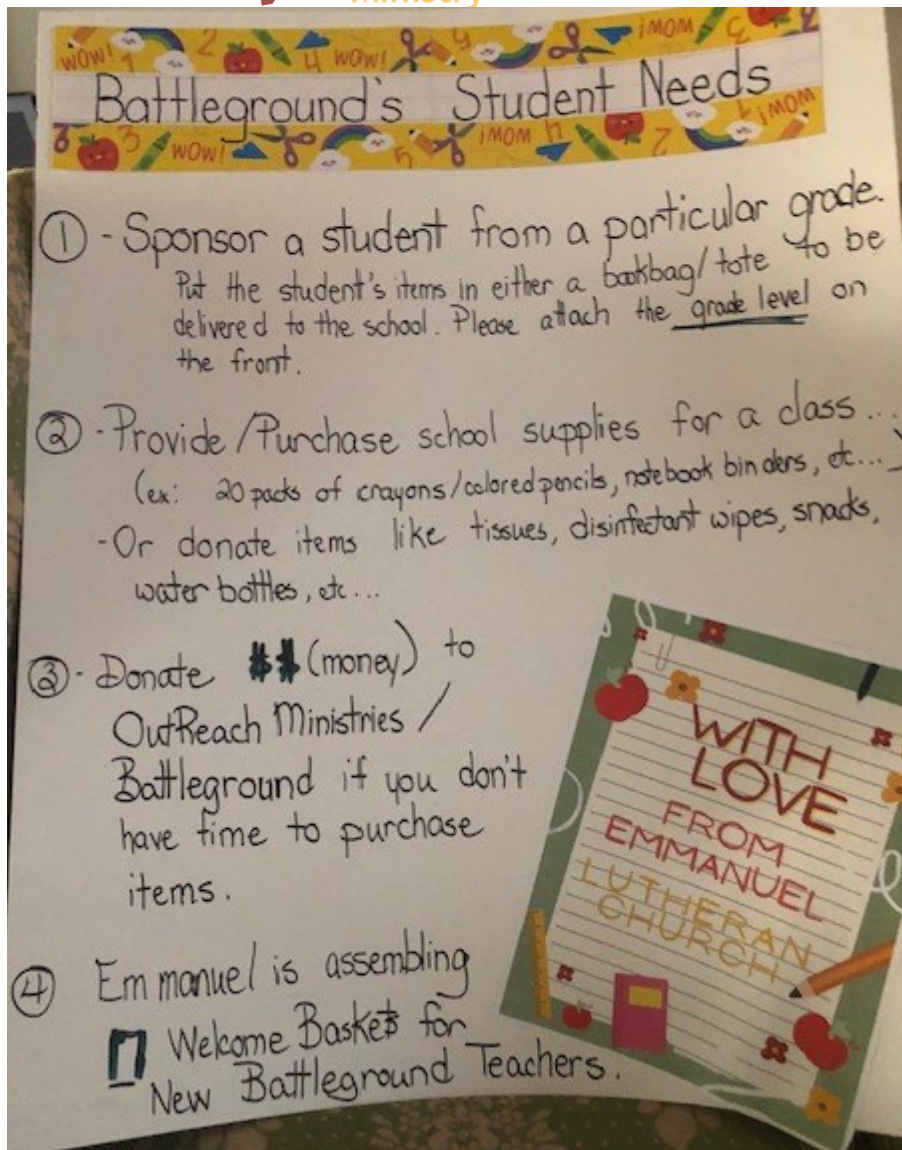 Ministry
WOW! 1 2 3 4 WOW!
Battleground's Student Needs
3 WOW! 5
① - Sponsor a student from a particular grade.
Put the student's items in either a bookbag/tote to be
delivered to the school. Please attach the grade level on
the front.
② - Provide/Purchase school supplies for a class...
(ex: 20 packs of crayons/colored pencils, notebook binders, etc...)
- Or donate items like tissues, disinfectant wipes, snacks,
water bottles, etc...
③ - Donate $$ (money) to
OutReach Ministries /
Battleground if you don't
have time to purchase
items.
④ Emmanuel is assembling
7 Welcome Baskets for
New Battleground Teachers.
WITH
LOVE
FROM
EMMANUEL
LUTHERAN
CHURCH